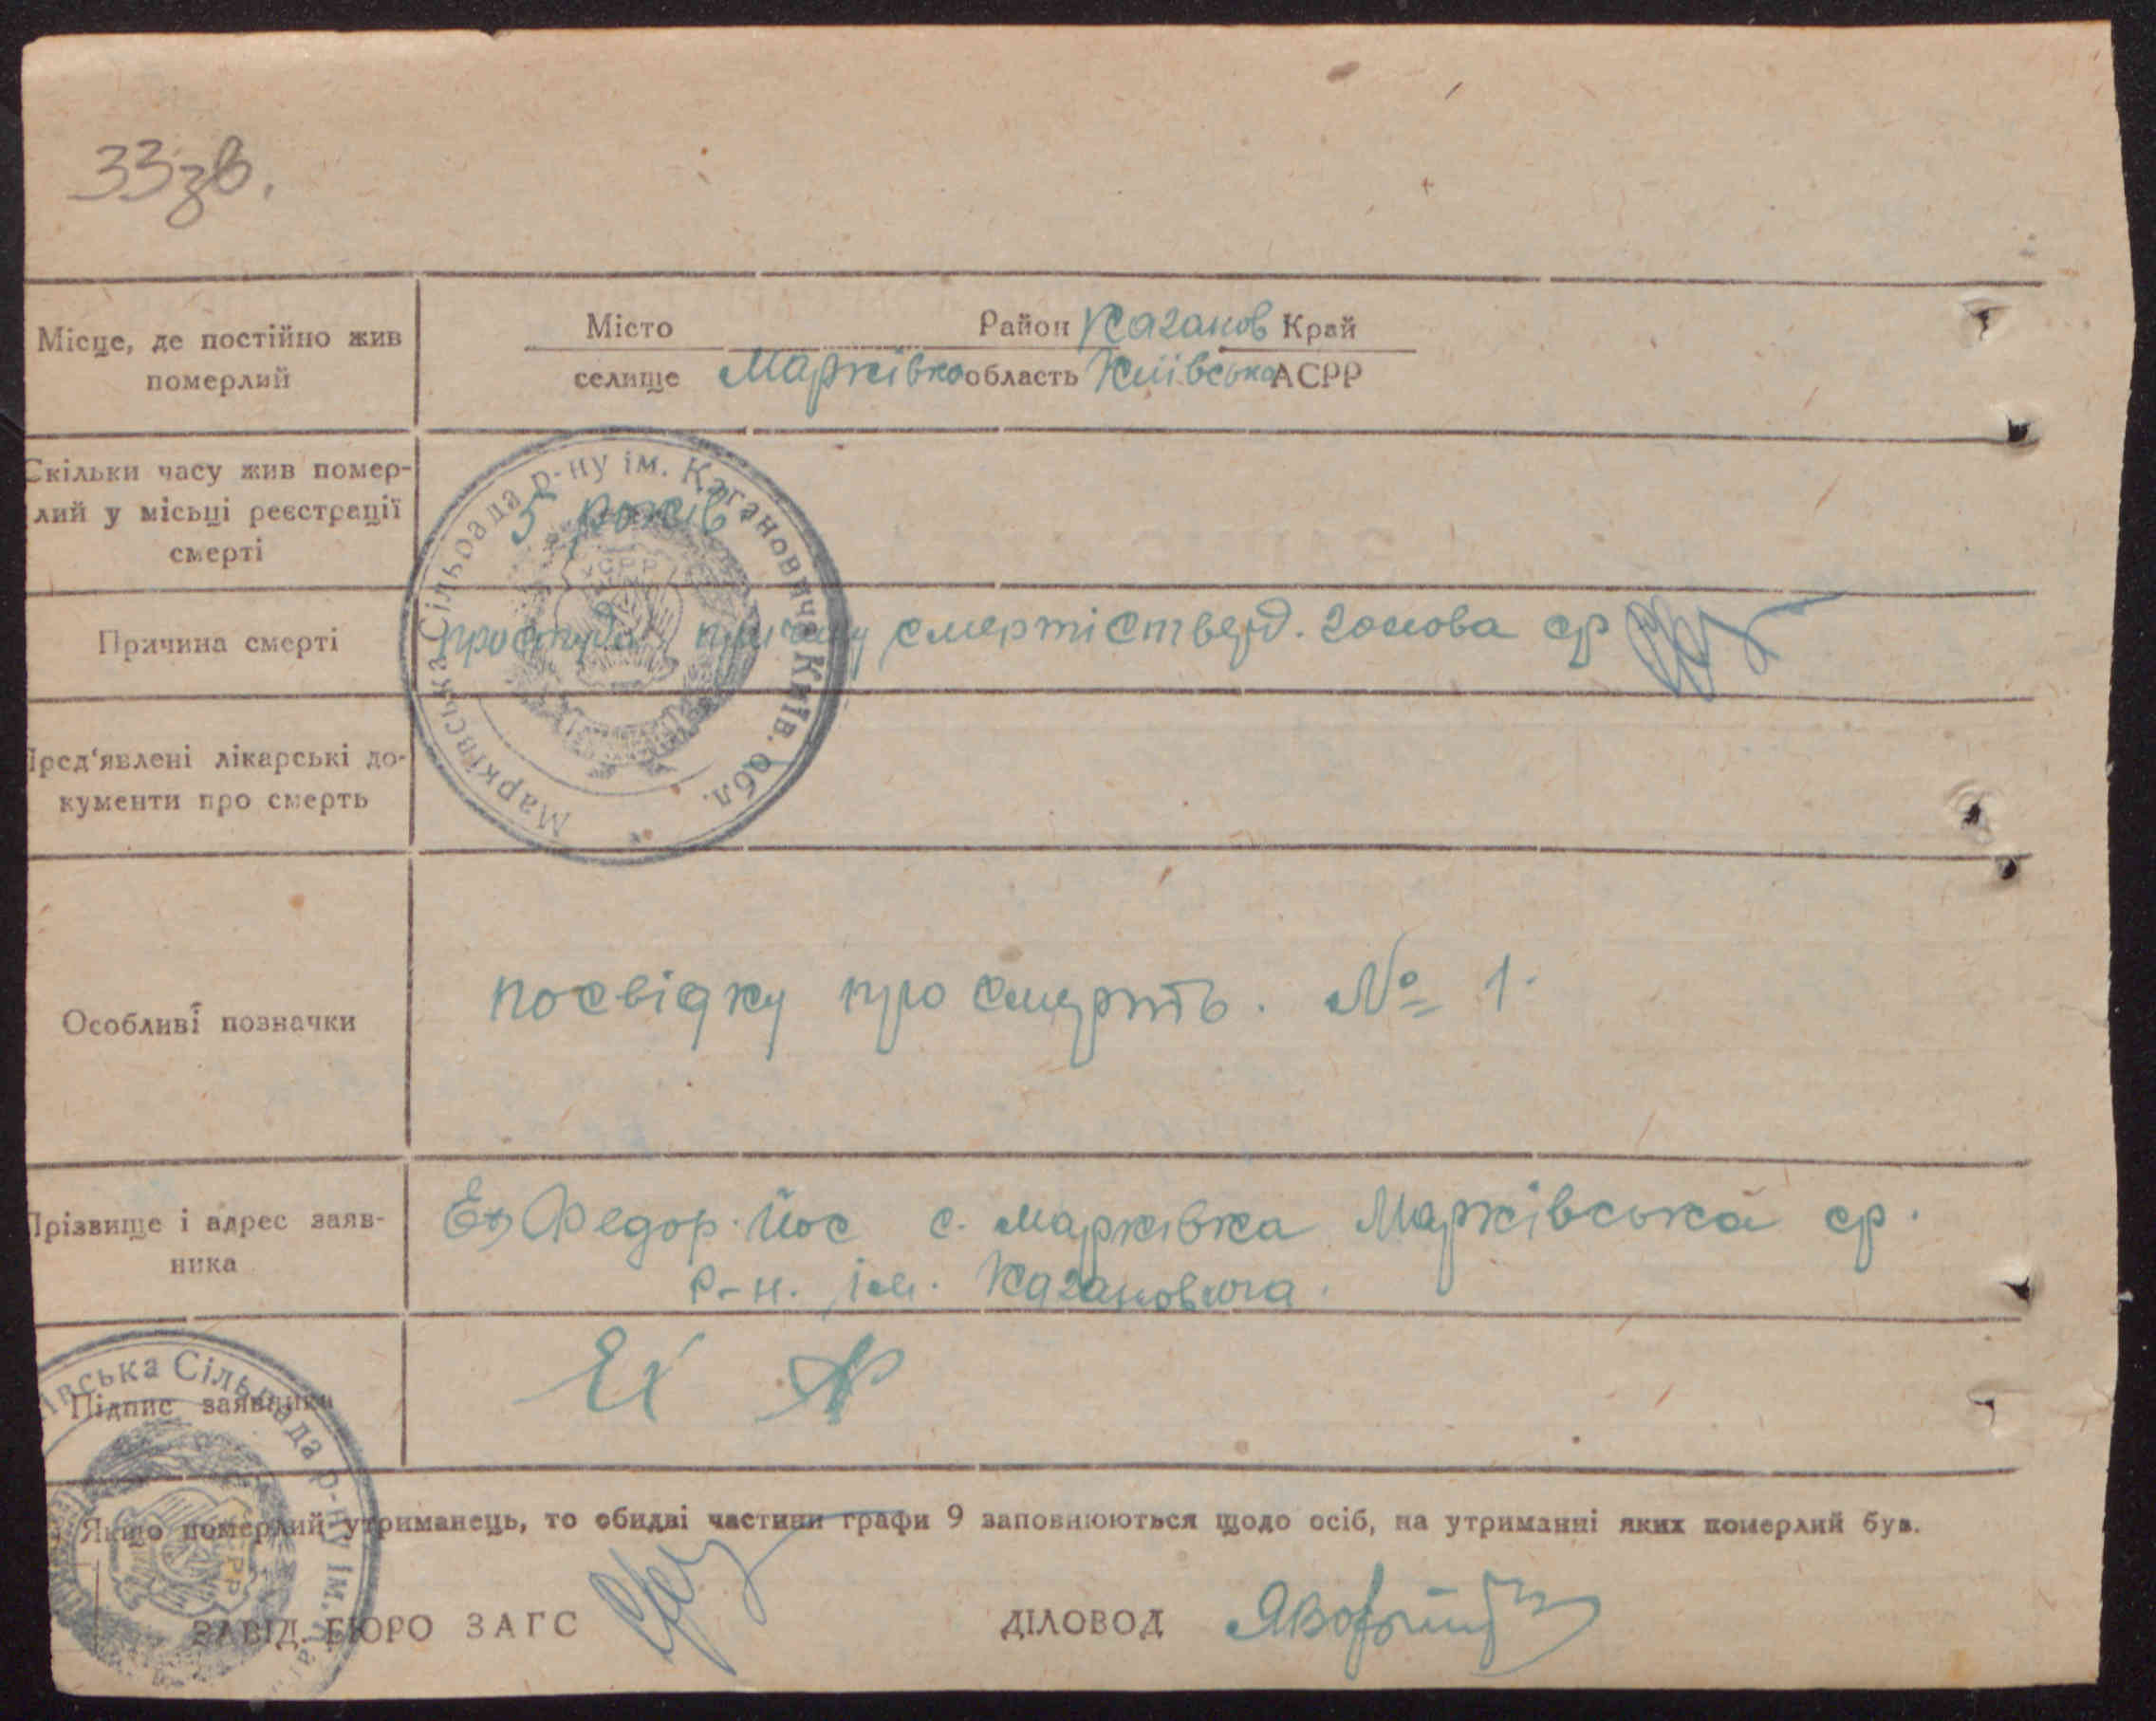 33зв.
Місце, де постійно жив померлий
Місто Район Каганов Край
селище Марківка область Київська АСРР
Скільки часу жив помер-
лий у місьці реєстрації
смерті
5 років
Причина смерті
простуда причину смерті стверд. голова ср
Пред'явлені лікарські до-
кументи про смерть
Особливі позначки
посвідку про смерть. № 1.
Прізвище і адрес заяв-
ника
Федор. Йос с. Марківка Марківська ср.
р-н. ім. Кагановича.
Підпис заявника
Якщо померлий утриманець, то обидві частини графи 9 заповнюються щодо осіб, на утриманні яких померлий був.
ЗАВІД. БЮРО ЗАГС
ДІЛОВОД
Марківська Сільрада р-ну ім. Кагановича Київ. обл.
УСРР
івська Сільрада р-ну ім.